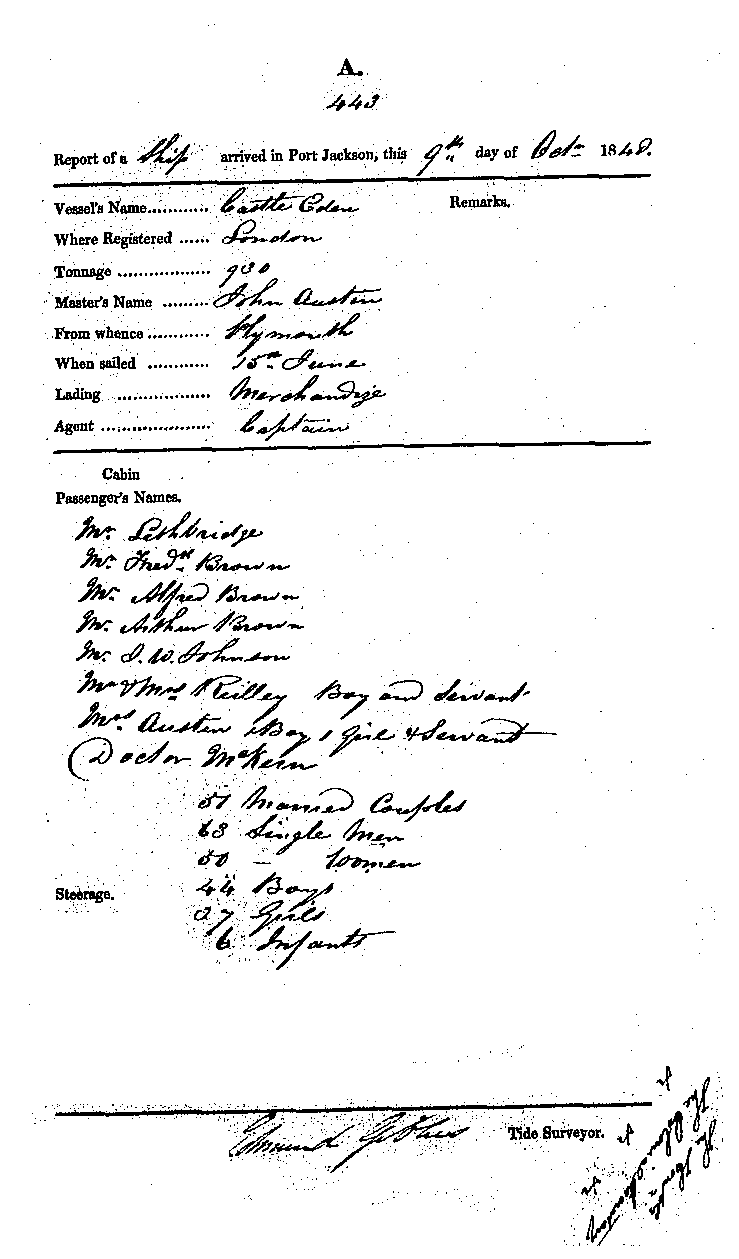 A.
443
Report of a Ship arrived in Port Jackson, this 9th day of Octr 1848.
Vessel's Name........... Castle Eden
Remarks.
Where Registered ...... London
Tonnage ................. 930
Master's Name ......... John Austin
From whence............ Plymouth
When sailed ............ 15th June
Lading ................. Merchandize
Agent .................... Captain
Cabin
Passenger's Names.
Mr Lethbridge
Mr Fredk Brown
Mr Alfred Brown
Mr Arthur Brown
Mr J. W. Johnson
Mr & Mrs Reilley Boy and Servant
Mrs Austen 1 Boy 1 Girl & Servant
Doctor McKern
51 Married Couples
63 Single Men
50 — Women
Steerage.
44 Boys
37 Girls
6 Infants
Edmund Tide Surveyor.
The Colonial Secretary
The